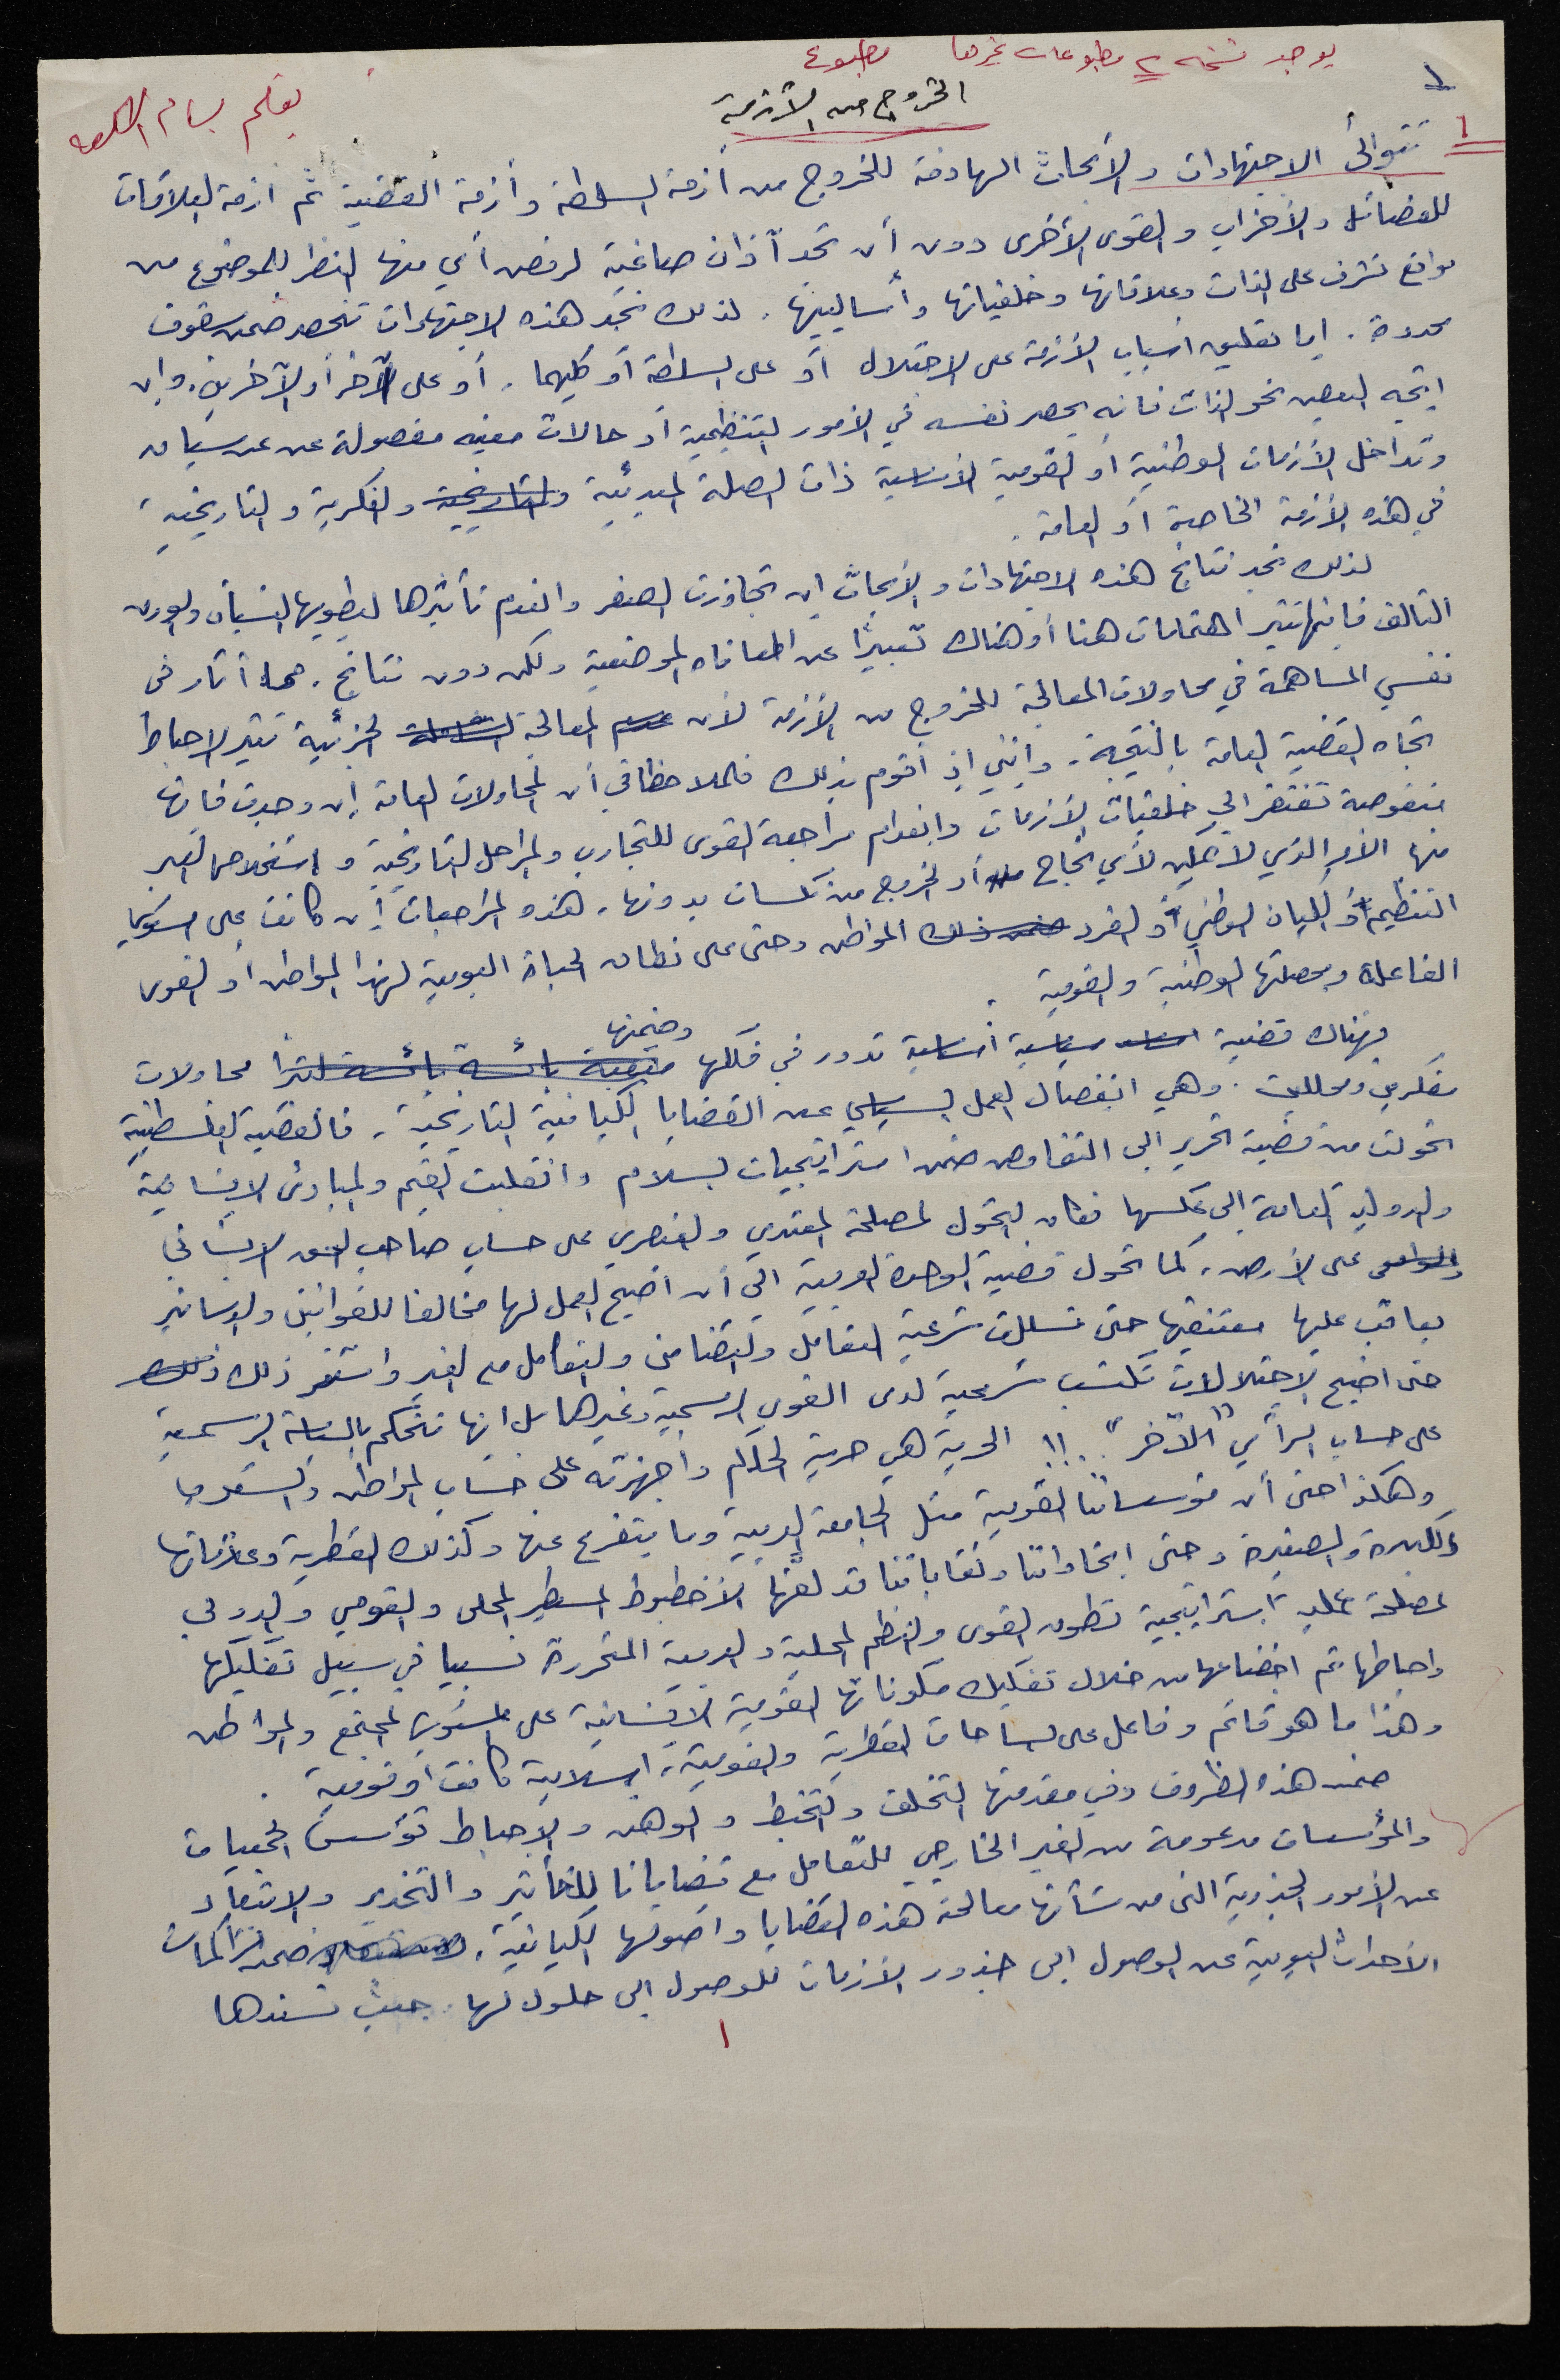 يوجد نسخه مطبوعات غيرها مطبوع
الخروج من الأزمة
بقلم بسام
1
تتوالى الاجتهادات والأبحاث الهادفة للخروج من أزمة السلطة وأزمة القضية ثم ازمة العلاقات
للفصائل والأحزاب والقوى الأخرى دون أن تجد آذان صاغية لرفض أي منها النظر للموضوع من
مواقع تشرف على الذات وعلاقاتها وخلفياتها وأساليبها. لذلك نجد هذه الاجتهادات تنحصر ضمن سقوف
محددة. اما تعليق أسباب الأزمة على الاحتلال أو على السلطة أو كليهما. أو على الآخر أو الآخرين. وان
اتجه البعض نحو الذات فانه يحصر نفسه في الأمور التنظيمية أو حالات معينه مفصولة عن سياق
وتداخل الأزمات الوطنية أو القومية الأساسية ذات الصلة المبدئية والتاريخية والفكرية والتاريخية
في هذه الأزمة الخاصة أو العامة.
لذلك نجد نتائج هذه الاجتهادات والأبحاث ان تجاوزت الصفر وانعدم تأثيرها ليطويها النسيان والورق
التالف فانها تثير اهتمامات هنا أو هناك تعبيرًا عن المعاناه الموضعية ولكن دون نتائج. مما أثار في
نفسي المساهمة في محاولات المعالجة للخروج من الأزمة لأن عدم المعالجة الشاملة الجزئية تثير الاحباط
تجاه القضية العامة بالنتيجة. وانني إذ أقوم بذلك فلملاحظاتي أن المحاولات العامة إن وجدت فانها
منقوصة تفتقر الى خلفيات الأزمات وانعدام مراجعة القوى للتجارب والمراحل التاريخية واستخلاص العبر
منها الأمر الذي لا يمكن لأي نجاح أو الخروج من نكسات بدونها. هذه المراجعات إن كانت على مستوى
التنظيم أو الكيان الوطني أو الفرد ضمن ذلك المواطن وحتى على نطاق الحياة اليومية لهذا المواطن أو القوى
الفاعلة ومحصلتها الوطنية والقومية.
فهناك قضية سياسية أساسية تدور في فلكها وضمنها محاولات
مفكرين ومحللين. وهي انفصال العمل السياسي عن القضايا الكيانية التاريخية. فالقضية الفلسطينية
تحولت من قضية تحرير الى التفاوض ضمن استراتيجيات السلام وانقلبت القيم والمبادئ الانسانية
والدولية العامة إلى عكسها فكان التحول لمصلحة المعتدي والعنصري على حساب صاحب الحق الانساني
على الأرض. كما تحول قضية الوحدة العربية الى أن اصبح العمل لها مخالفا للقوانين والدساتير
يعاقب عليها معتنقيها حتى تسللت شرعية التعامل والتضامن والتعامل مع الغير واستقر ذلك
حتى اصبح الاحتلالات تكتسب شرعية لدى القوى الرسمية وغيرها بل انها تتحكم بالسياسة الرسمية
على حساب الرأي "الآخر"..!! الحرية هي حرية الحاكم وأجهزته على حساب المواطن والشعوب
وهكذا حتى أن مؤسساتنا القومية مثل الجامعة العربية وما يتفرع عنها وكذلك القطرية وعلاقاتها
الكبيرة والصغيرة وحتى اتحاداتنا ونقاباتنا قد لفها الأخطبوط المسيطر المحلى والقومي والدولي
لمصلحة استراتيجية تطويق القوى والنظم المحلية والعربية المتحررة نسبيا في سبيل تفكيكها
واحباطها ثم اخضاعها من خلال تفكيك مكوناتها القومية الانسانية على مستوى المجتمع والمواطن
وهذا ما هو قائم وفاعل على الساحات القطرية والقومية، اسلامية كانت او قومية.
ضمن هذه الظروف وفي مقدمتها التخلف والتخبط والوهن والاحباط تؤسس الجمعيات
والمؤسسات مدعومة من الغير الخارجي للتعامل مع قضايانا للتأثير والتخدير والابتعاد
عن الأمور الجذرية التي من شأنها معالجة هذه القضايا واصولها الكيانية. ضمن تراكمات
الأحداث اليومية عن الوصول الى جذور الأزمات للوصول الى حلول لها. حيث تسندها
١